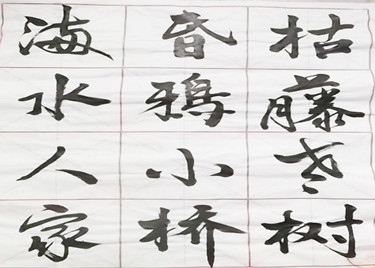 枯藤老树
昏鴉小桥
海水人家